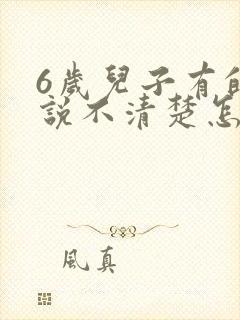 6歲兒子有
說不清楚怎
風真